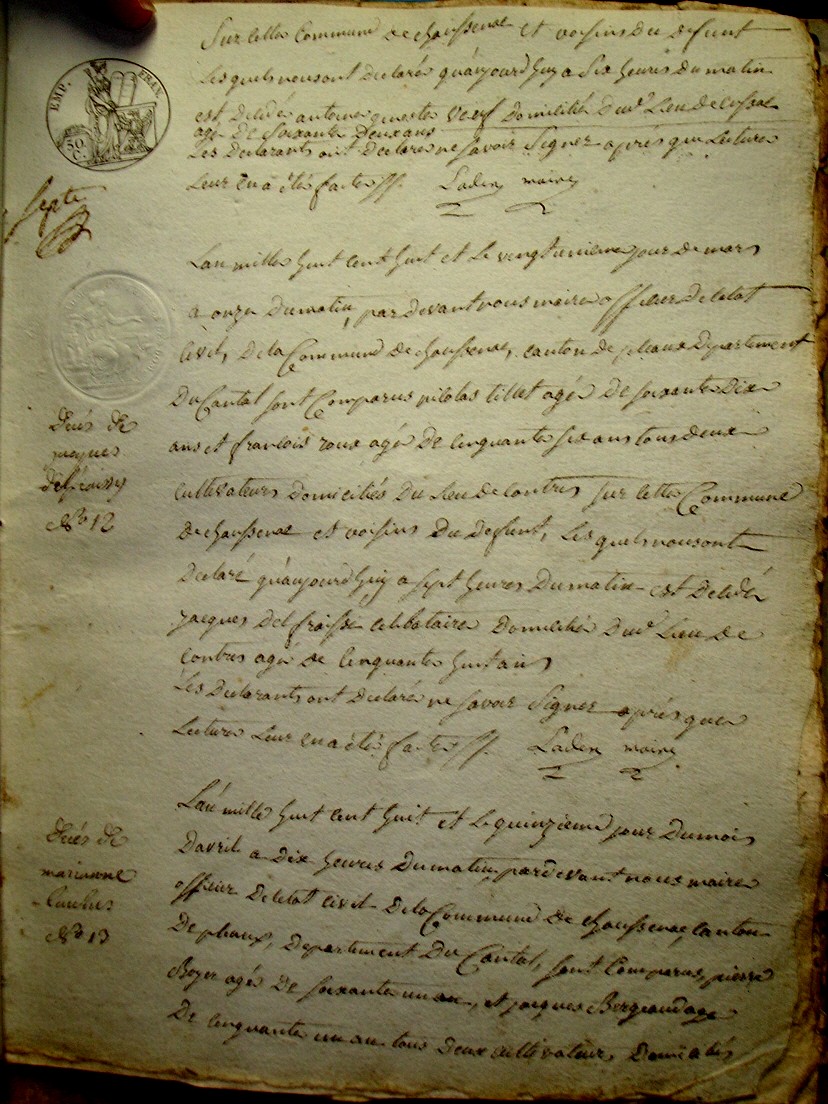 EMP. FRAN.
50 C.
septe
Sur cette Commune de chaussenac et voisins du defunt
Lesquels nous ont declaré qu'aujourd'huy a six heures du matin
est decedé antoine veuf domicilié du d. Lieu de
agé de soixante deux ans
Les declarants ont declaré ne savoir signer après que Lecture
Leur en a été faite ff. Laden maire
L'an mille huit cent huit et le vingtunieme jour de mars
a onze du matin, par devant nous maire officier de letat
civil, de la Commune de chaussenac, canton de pleaux Departement
du Cantal sont Comparus nicolas tillet agé de soixante dix
ans et francois roux agé de cinquante six ans tous deux
cultivateurs domiciliés du Lieu de contres sur cette Commune
de chaussenac et voisins du defunt, Lesquels nous ont
declaré qu'aujourd'huy a sept heures du matin est decedé
jacques delfraisse celibataire domicilié du d. Lieu de
contres agé de cinquante huit ans
Les declarants ont declaré ne savoir signer après que
Lecture Leur en a été faite ff. Laden maire
décés de
jacques
delfraissy
No 12
L'an mille huit cent huit et le quinzieme jour du mois
d'avril a dix heures du matin, par devant nous maire
officier de letat civil de la Commune de chaussenac, canton
de pleaux, departement du Cantal, sont Comparus, pierre
Boyer agé de soixante un an, et jacques agé
de cinquante un an tous deux cultivateurs domiciliés
décés de
marianne
No 13